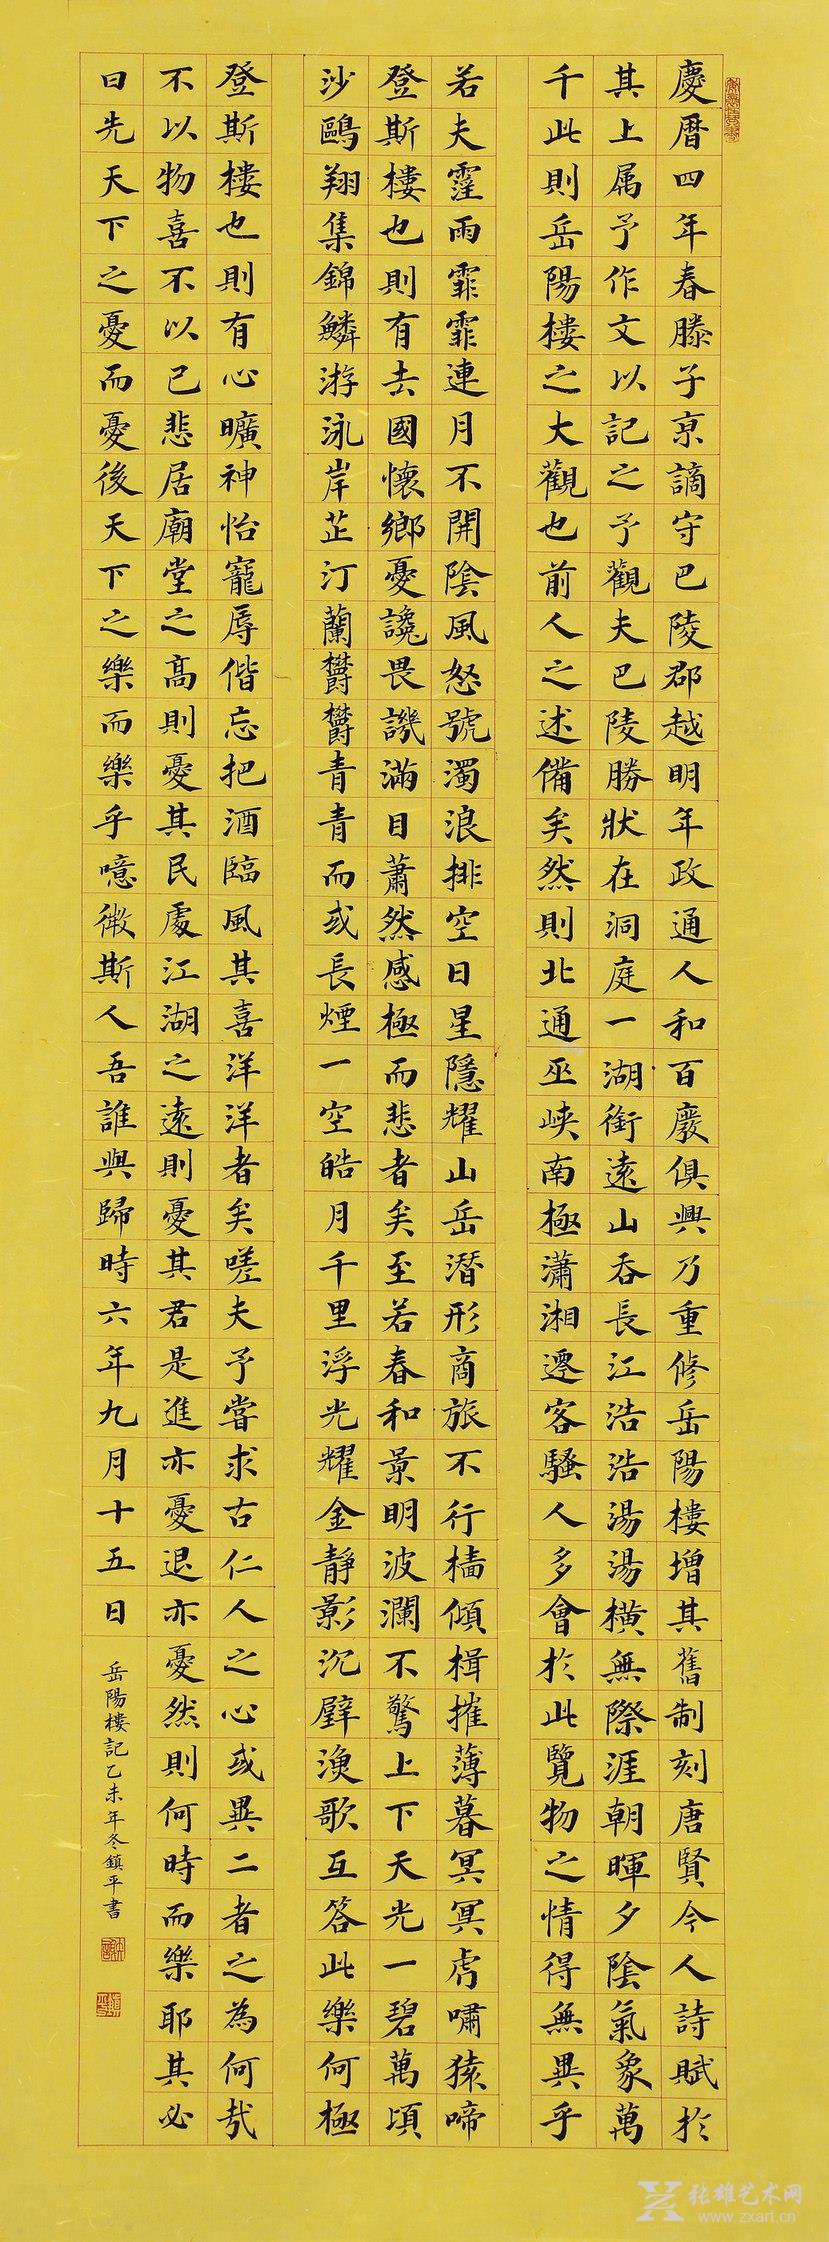 慶曆四年春滕子京謫守巴陵郡越明年政通人和百廢俱興乃重修岳陽樓增其舊制刻唐賢今人詩賦於
其上属予作文以記之予觀夫巴陵勝狀在洞庭一湖銜遠山吞長江浩浩湯湯橫無際涯朝暉夕陰氣象萬
千此則岳陽樓之大觀也前人之述備矣然則北通巫峽南極瀟湘遷客騷人多會於此覽物之情得無異乎
若夫霪雨霏霏連月不開陰風怒號濁浪排空日星隱耀山岳潛形商旅不行檣傾楫摧薄暮冥冥虎嘯猿啼
登斯樓也則有去國懷鄉憂讒畏譏滿目蕭然感極而悲者矣至若春和景明波瀾不驚上下天光一碧萬頃
沙鷗翔集錦鱗游泳岸芷汀蘭欝欝青青而或長煙一空皓月千里浮光耀金靜影沉璧漁歌互答此樂何極
登斯樓也則有心曠神怡寵辱偕忘把酒臨風其喜洋洋者矣嗟夫予嘗求古仁人之心或異二者之為何哉
不以物喜不以己悲居廟堂之高則憂其民處江湖之遠則憂其君是進亦憂退亦憂然則何時而樂耶其必
曰先天下之憂而憂後天下之樂而樂乎噫微斯人吾誰與歸時六年九月十五日
岳陽樓記乙未年冬鎮平書
张雄艺术网
www.zxart.cn